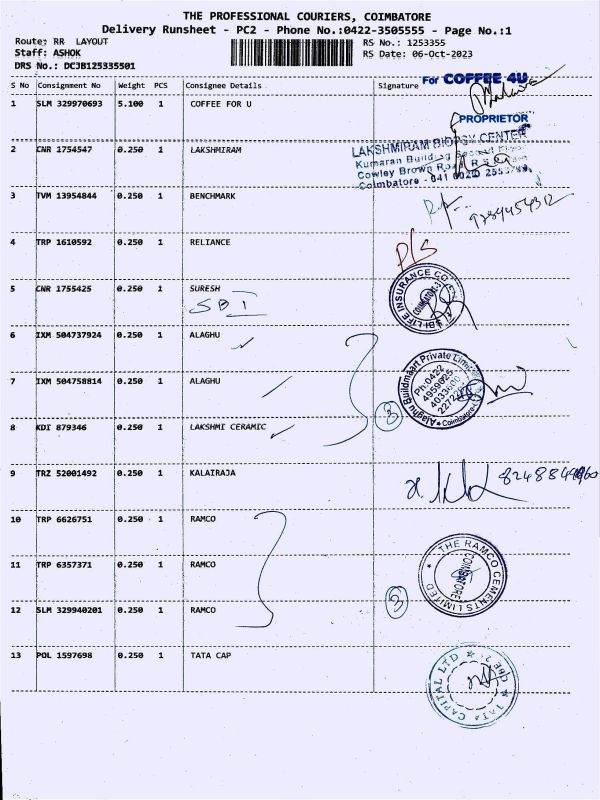 THE PROFESSIONAL COURIERS, COIMBATORE
Delivery Runsheet - PC2 - Phone No.:0422-3505555 - Page No.:1
Route: RR LAYOUT
RS No.: 1253355
Staff: ASHOK
RS Date: 06-Oct-2023
DRS No.: DCJB125335501
S No Consignment No Weight PCS Consignee Details Signature
For COFFEE 4U
1 SLM 329970693 5.100 1 COFFEE FOR U
PROPRIETOR
2 CNR 1754547 0.250 1 LAKSHMIRAM
LAKSHMIRAM BIOPSY CENTER
Kumaran Building
Cowley Brown Road
Coimbatore - 641 002
3 TVM 13954844 0.250 1 BENCHMARK
4 TRP 1610592 0.250 1 RELIANCE
P/S
5 CNR 1755425 0.250 1 SURESH
SBI
SBI LIFE INSURANCE CO
COIMBATORE-3
6 IXM 504737924 0.250 1 ALAGHU
7 IXM 504758814 0.250 1 ALAGHU
Alaghu Buildmaart Private Limited
Ph:0422
4959025
Coimbatore
3
8 KDI 879346 0.250 1 LAKSHMI CERAMIC
9 TRZ 52001492 0.250 1 KALAIRAJA
10 TRP 6626751 0.250 1 RAMCO
11 TRP 6357371 0.250 1 RAMCO
THE RAMCO CEMENTS LIMITED
COIMBATORE
12 SLM 329940201 0.250 1 RAMCO
3
13 POL 1597698 0.250 1 TATA CAP
TATA CAPITAL LTD
CBE 2